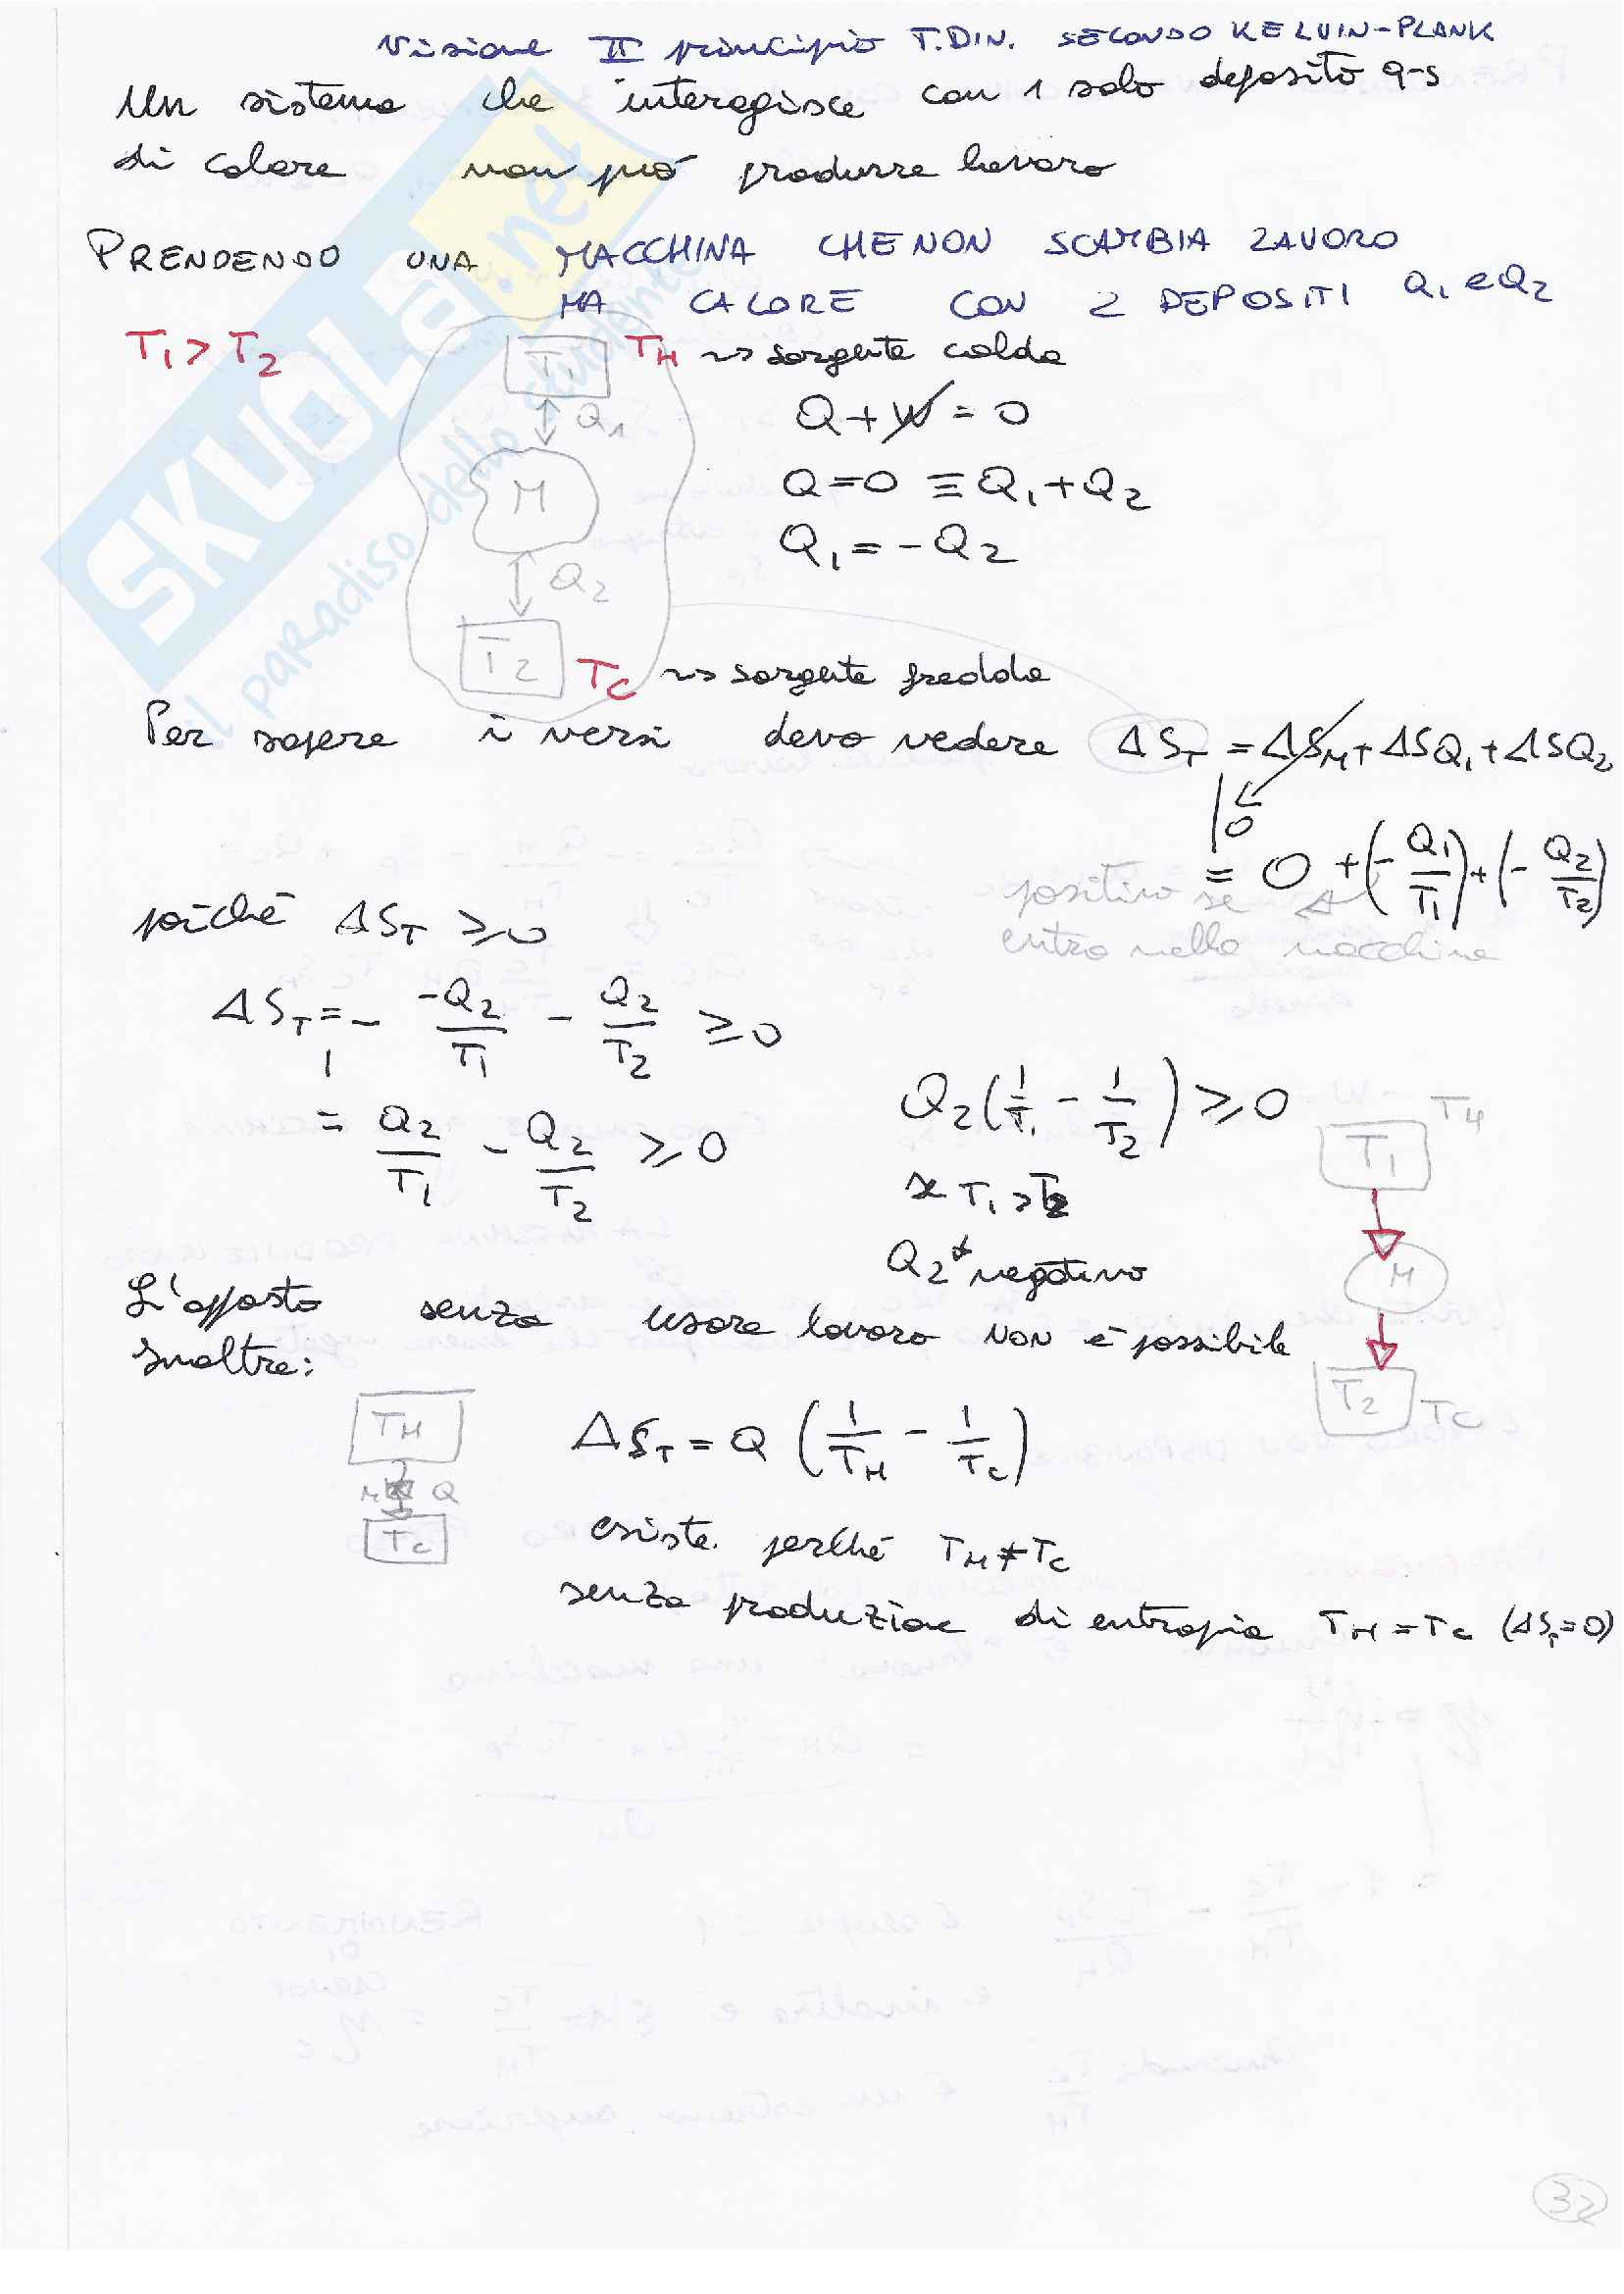 Visione II principio T.DIN. SECONDO KELVIN-PLANK
Un sistema che interagisce con 1 solo deposito q-s
di calore non può produrre lavoro
PRENDENDO UNA MACCHINA CHE NON SCAMBIA LAVORO
MA CALORE CON 2 DEPOSITI Q₁ e Q₂
T₁ > T₂
T₁ T_H ⇝ sorgente calda
Q₁
Q + W = 0
M
Q = 0 ≡ Q₁ + Q₂
Q₁ = - Q₂
Q₂
T₂ T_C ⇝ sorgente fredda
Per sapere i versi devo vedere ΔS_T = ΔS_M + ΔSQ₁ + ΔSQ₂
0
= 0 + (- Q₁/T₁) + (- Q₂/T₂)
positivo se
entra nella macchina
poiché ΔS_T ≥ 0
ΔS_T = - -Q₂/T₁ - Q₂/T₂ ≥ 0
= Q₂/T₁ - Q₂/T₂ ≥ 0
Q₂ (1/T₁ - 1/T₂) ≥ 0
se T₁ > T₂
Q₂ negativo
T₁ T_H
M
T₂ T_C
L'opposto senza usare lavoro NON è possibile
Inoltre:
T_H
M Q
T_C
ΔS_T = Q (1/T_H - 1/T_C)
esiste perché T_H ≠ T_C
senza produzione di entropia T_H = T_C (ΔS_T = 0)
32
SKUOLA.net
il paradiso dello studente